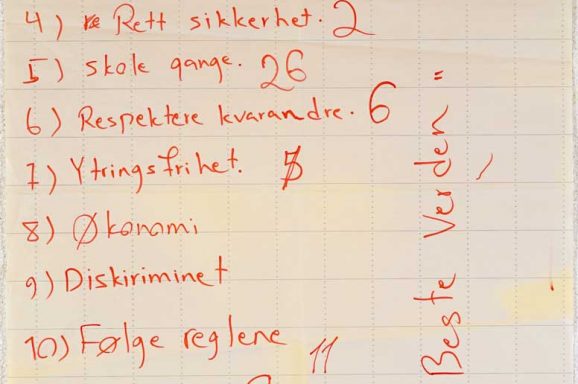 4) Rett sikkerhet. 2
5) skole gange. 26
6) Respektere kvarandre. 6
7) Ytringsfrihet.
8) Økonomi
9) Diskiriminet
10) Følge reglene 11
Beste Verden "